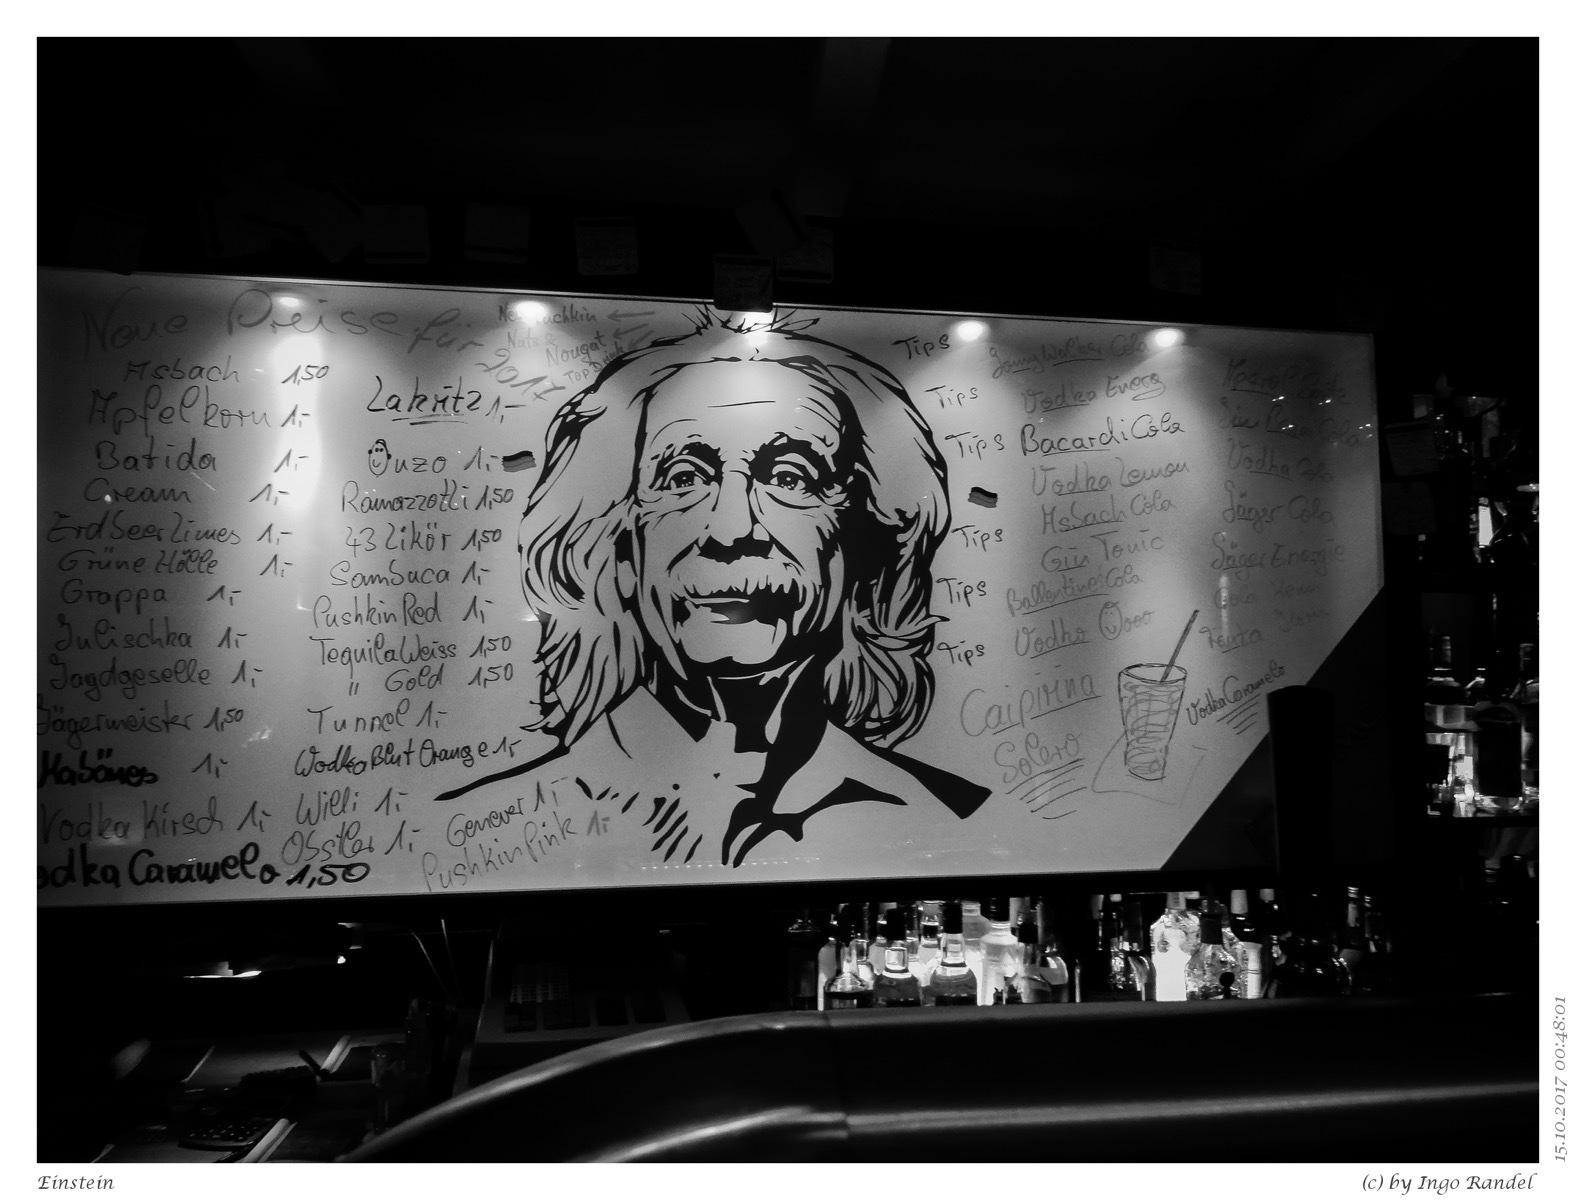 Neue Preise für 2017
Asbach 1,50
Apfelkorn 1,-
Batida 1,-
Cream 1,-
Erdbeerlimes 1,-
Grüne Hölle 1,-
Grappa 1,-
Julischka 1,-
Jagdgeselle 1,-
Jägermeister 1,50
Habönes 1,-
Vodka Kirsch 1,-
odka Caramelo 1,50
Lakritz 1,-
Ouzo 1,-
Ramazzotti 1,50
43 Likör 1,50
Sambuca 1,-
Pushkin Red 1,-
Tequila Weiss 1,50
" Gold 1,50
Tunnel 1,-
Wodka Blut Orange 1,-
Willi 1,-
Ossiler 1,-
Genever 1,-
Pushkin Pink 1,-
Puschkin
Nuts &
Nougat
Top Drink
Tips Jonny Walker Cola
Tips Vodka Energ
Tips Bacardi Cola
Vodka Lemon
Asbach Cola
Tips Gin Tonic
Tips Ballentine's Cola
Tips Vodka Oooo
Caipirina
Solero
Vodka Cola
Jäger Cola
Jäger Energie
Vodka Caramelo
15.10.2017 00:48:01
Einstein
(c) by Ingo Randel